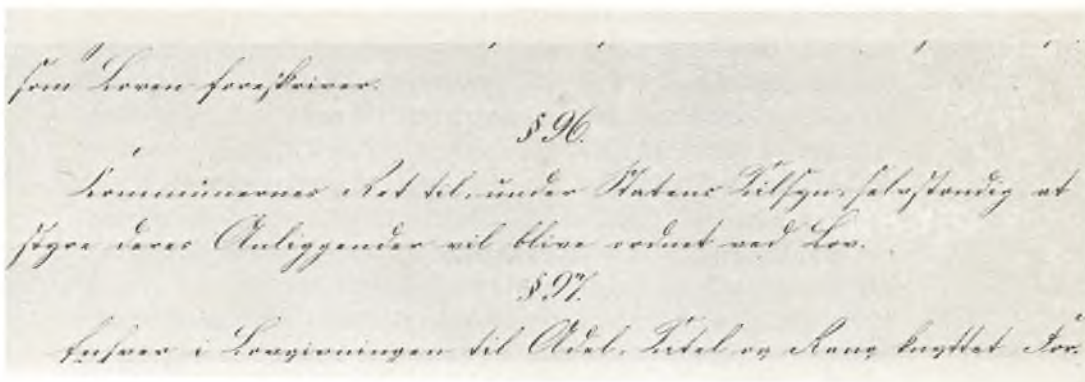 som Loven foreskriver.
§ 96.
Kommunernes Ret til, under Statens Tilsyn, selvstændig at
styre deres Anliggender vil blive ordnet ved Lov.
§ 97.
Enhver i Lovgivningen til Adel, Titel og Rang knyttet For-